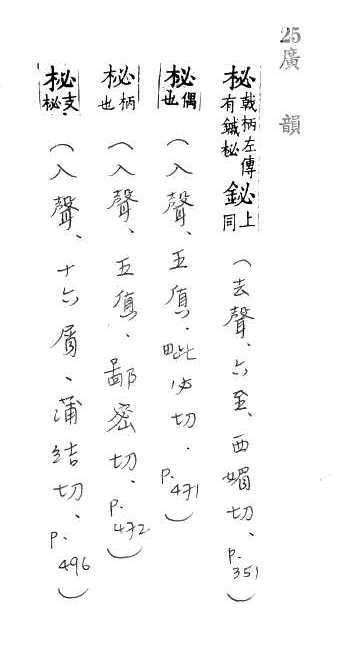 25 廣韻
柲 戟柄左傳有鏚柲 䥢 上同 (去聲、六至、兵媚切、p.351)
柲 偶也 (入聲、五質、毗必切.p.471)
柲 柄也 (入聲、五質、鄙密切、p.472)
柲 柲支. (入聲、十六屑、蒲結切、p.496)